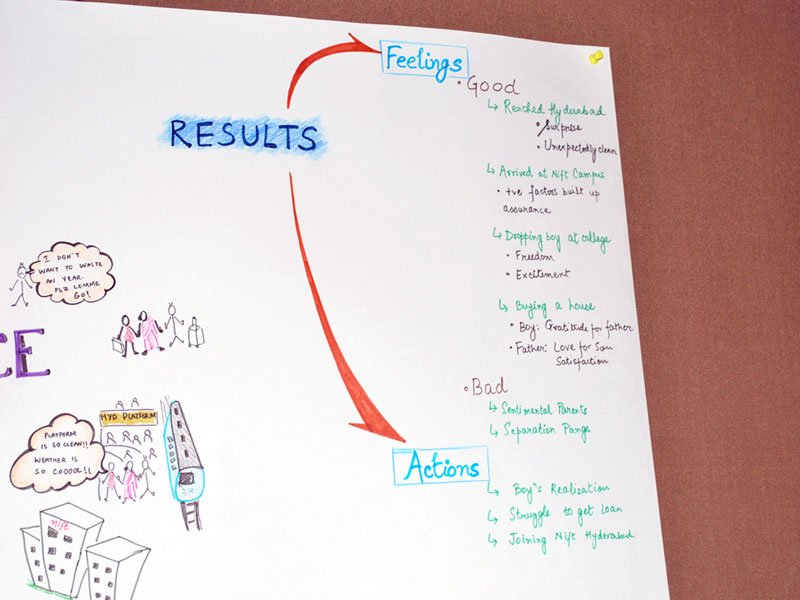 Feelings
• Good
↳ Reached Hyderabad
• Surprise
• Unexpectedly clean
RESULTS
↳ Arrived at Nift Campus
• +ve factors built up
assurance
↳ Dropping boy at college
• Freedom
• Excitement
↳ Buying a house
• Boy: Gratitude for father
• Father: Love for Son
Satisfaction
• Bad
↳ Sentimental Parents
↳ Separation Pangs
Actions
↳ Boy's Realization
↳ Struggle to get Loan
↳ Joining Nift Hyderabad
I DON'T
WANT TO WASTE
AN YEAR.
PLZ LEMME
GO!
CE
HYD PLATFORM
PLATFORM
IS SO CLEAN!!
WEATHER IS
SO COOOL!!
nift